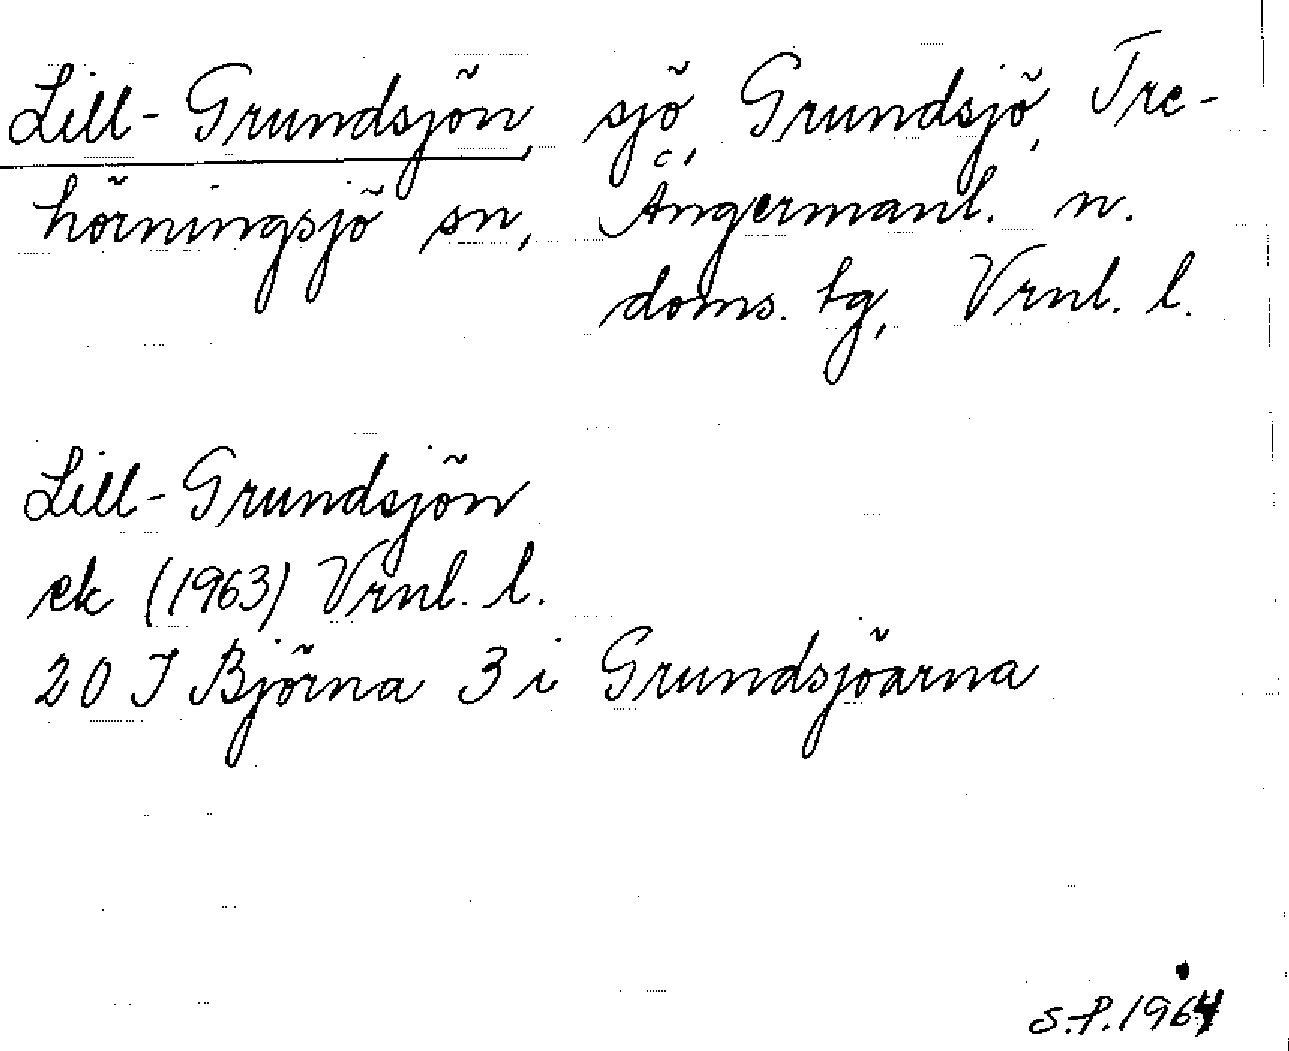 Lill-Grundsjön, sjö, Grundsjö, Tre-
hörningsjö sn, Ångermanl. n.
doms. tg, Vrnl. l.
Lill-Grundsjön
ek (1963) Vrnl. l.
20 J Björna 3 i Grundsjöarna
S.P. 1964